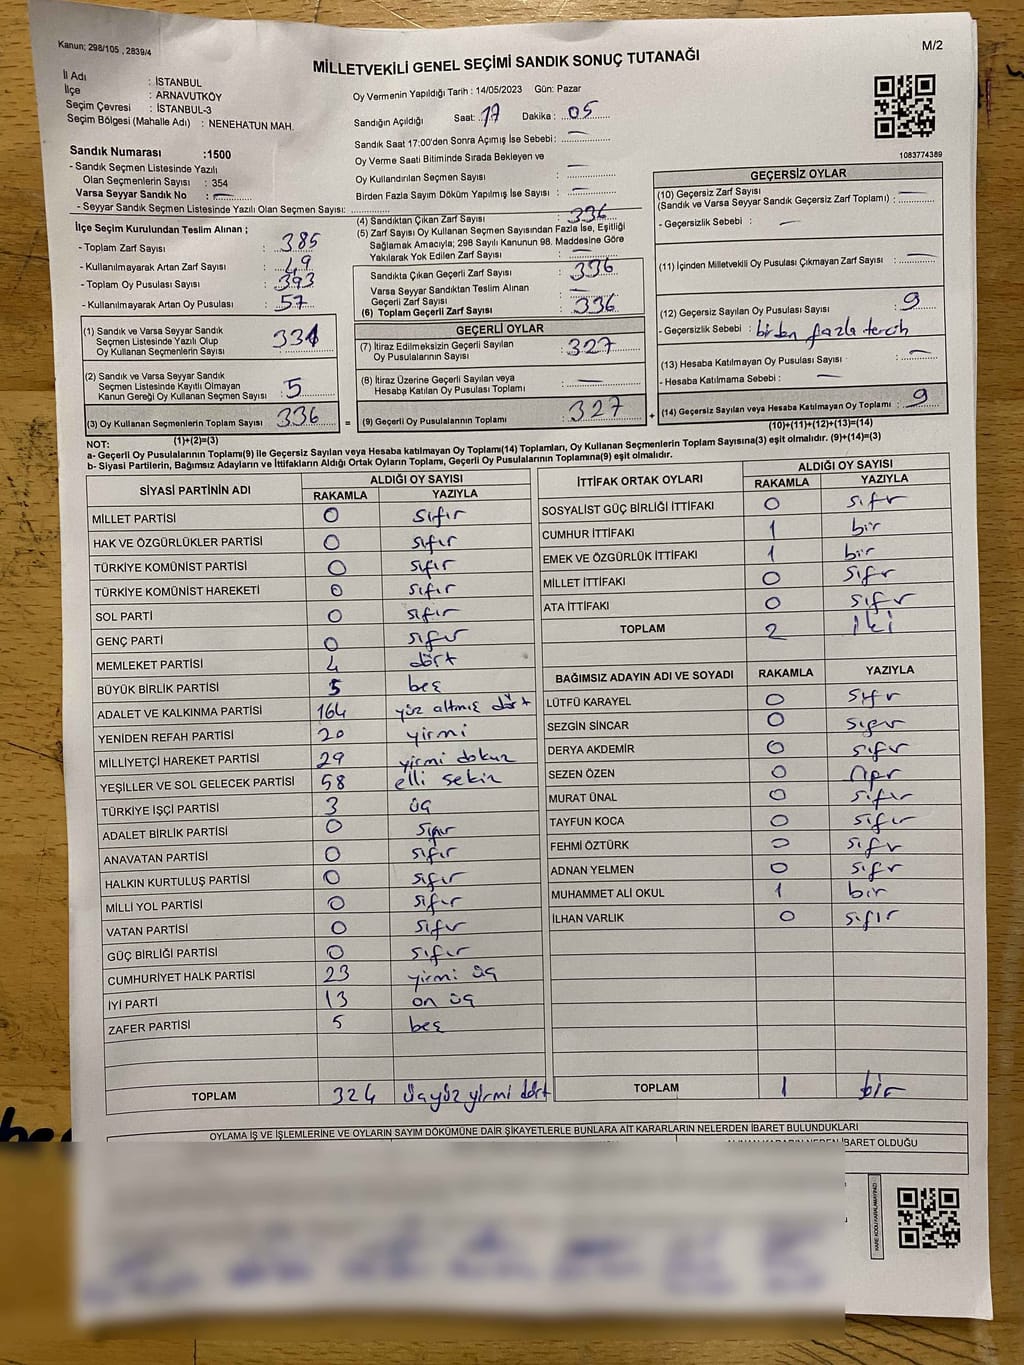 Kanun; 298/105 , 2839/4
M/2
MİLLETVEKİLİ GENEL SEÇİMİ SANDIK SONUÇ TUTANAĞI
İl Adı : İSTANBUL
İlçe : ARNAVUTKÖY
Seçim Çevresi : İSTANBUL-3
Seçim Bölgesi (Mahalle Adı) : NENEHATUN MAH.
Sandık Numarası :1500
- Sandık Seçmen Listesinde Yazılı
Olan Seçmenlerin Sayısı : 354
Varsa Seyyar Sandık No :
- Seyyar Sandık Seçmen Listesinde Yazılı Olan Seçmen Sayısı:
Oy Vermenin Yapıldığı Tarih : 14/05/2023 Gün: Pazar
Sandığın Açıldığı Saat: 17 Dakika : 05
Sandık Saat 17:00'den Sonra Açımış İse Sebebi: —
Oy Verme Saati Bitiminde Sırada Bekleyen ve
Oy Kullandırılan Seçmen Sayısı : —
Birden Fazla Sayım Döküm Yapılmış İse Sayısı : —
1083774389
İlçe Seçim Kurulundan Teslim Alınan ;
- Toplam Zarf Sayısı : 385
- Kullanılmayarak Artan Zarf Sayısı : 49
- Toplam Oy Pusulası Sayısı : 393
- Kullanılmayarak Artan Oy Pusulası : 57
(1) Sandık ve Varsa Seyyar Sandık
Seçmen Listesinde Yazılı Olup
Oy Kullanan Seçmenlerin Sayısı : 331
(2) Sandık ve Varsa Seyyar Sandık
Seçmen Listesinde Kayıtlı Olmayan
Kanun Gereği Oy Kullanan Seçmen Sayısı : 5
(3) Oy Kullanan Seçmenlerin Toplam Sayısı : 336
(1)+(2)=(3)
(4) Sandıktan Çıkan Zarf Sayısı : 336
(5) Zarf Sayısı Oy Kullanan Seçmen Sayısından Fazla İse, Eşitliği
Sağlamak Amacıyla; 298 Sayılı Kanunun 98. Maddesine Göre
Yakılarak Yok Edilen Zarf Sayısı : —
Sandıkta Çıkan Geçerli Zarf Sayısı : 336
Varsa Seyyar Sandıktan Teslim Alınan
Geçerli Zarf Sayısı : —
(6) Toplam Geçerli Zarf Sayısı : 336
GEÇERLİ OYLAR
(7) İtiraz Edilmeksizin Geçerli Sayılan
Oy Pusulalarının Sayısı : 327
(8) İtiraz Üzerine Geçerli Sayılan veya
Hesaba Katılan Oy Pusulası Toplamı : —
= (9) Geçerli Oy Pusulalarının Toplamı : 327 +
GEÇERSİZ OYLAR
(10) Geçersiz Zarf Sayısı
(Sandık ve Varsa Seyyar Sandık Geçersiz Zarf Toplamı) : —
- Geçersizlik Sebebi : —
(11) İçinden Milletvekili Oy Pusulası Çıkmayan Zarf Sayısı : —
(12) Geçersiz Sayılan Oy Pusulası Sayısı : 9
- Geçersizlik Sebebi : birden fazla tercih
(13) Hesaba Katılmayan Oy Pusulası Sayısı : —
- Hesaba Katılmama Sebebi : —
(14) Geçersiz Sayılan veya Hesaba Katılmayan Oy Toplamı : 9
(10)+(11)+(12)+(13)=(14)
NOT:
a- Geçerli Oy Pusulalarının Toplamı(9) ile Geçersiz Sayılan veya Hesaba katılmayan Oy Toplamı(14) Toplamları, Oy Kullanan Seçmenlerin Toplam Sayısına(3) eşit olmalıdır. (9)+(14)=(3)
b- Siyasi Partilerin, Bağımsız Adayların ve İttifakların Aldığı Ortak Oyların Toplamı, Geçerli Oy Pusulalarının Toplamına(9) eşit olmalıdır.
SİYASİ PARTİNİN ADI ALDIĞI OY SAYISI
RAKAMLA YAZIYLA
MİLLET PARTİSİ 0 sıfır
HAK VE ÖZGÜRLÜKLER PARTİSİ 0 sıfır
TÜRKİYE KOMÜNİST PARTİSİ 0 sıfır
TÜRKİYE KOMÜNİST HAREKETİ 0 sıfır
SOL PARTİ 0 sıfır
GENÇ PARTİ 0 sıfır
MEMLEKET PARTİSİ 4 dört
BÜYÜK BİRLİK PARTİSİ 5 beş
ADALET VE KALKINMA PARTİSİ 164 yüz altmış dört
YENİDEN REFAH PARTİSİ 20 yirmi
MİLLİYETÇİ HAREKET PARTİSİ 29 yirmi dokuz
YEŞİLLER VE SOL GELECEK PARTİSİ 58 elli sekiz
TÜRKİYE İŞÇİ PARTİSİ 3 üç
ADALET BİRLİK PARTİSİ 0 sıfır
ANAVATAN PARTİSİ 0 sıfır
HALKIN KURTULUŞ PARTİSİ 0 sıfır
MİLLİ YOL PARTİSİ 0 sıfır
VATAN PARTİSİ 0 sıfır
GÜÇ BİRLİĞİ PARTİSİ 0 sıfır
CUMHURİYET HALK PARTİSİ 23 yirmi üç
İYİ PARTİ 13 on üç
ZAFER PARTİSİ 5 beş
TOPLAM 324 üçyüz yirmi dört
İTTİFAK ORTAK OYLARI ALDIĞI OY SAYISI
RAKAMLA YAZIYLA
SOSYALİST GÜÇ BİRLİĞİ İTTİFAKI 0 sıfır
CUMHUR İTTİFAKI 1 bir
EMEK VE ÖZGÜRLÜK İTTİFAKI 1 bir
MİLLET İTTİFAKI 0 sıfır
ATA İTTİFAKI 0 sıfır
TOPLAM 2 iki
BAĞIMSIZ ADAYIN ADI VE SOYADI RAKAMLA YAZIYLA
LÜTFÜ KARAYEL 0 sıfır
SEZGİN SİNCAR 0 sıfır
DERYA AKDEMİR 0 sıfır
SEZEN ÖZEN 0 sıfır
MURAT ÜNAL 0 sıfır
TAYFUN KOCA 0 sıfır
FEHMİ ÖZTÜRK 0 sıfır
ADNAN YELMEN 0 sıfır
MUHAMMET ALİ OKUL 1 bir
İLHAN VARLIK 0 sıfır
TOPLAM 1 bir
OYLAMA İŞ VE İŞLEMLERİNE VE OYLARIN SAYIM DÖKÜMÜNE DAİR ŞİKAYETLERLE BUNLARA AİT KARARLARIN NELERDEN İBARET BULUNDUKLARI
İBARET OLDUĞU
KARE KODU KARALAMAYINIZ!